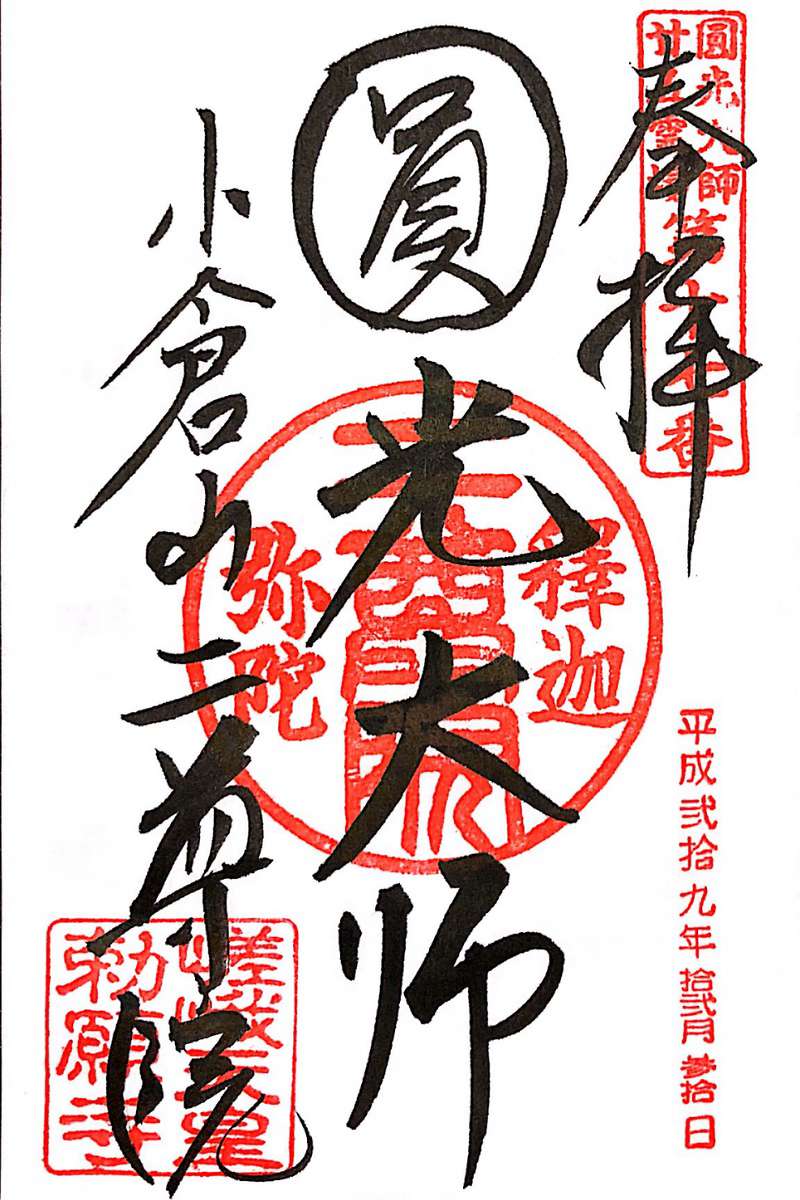 奉拝
圓光大師
廿五霊場第十七番
圓光大師
釋迦
弥陀
二尊院
小倉山二尊院
嵯峨天皇
勅願寺
平成弐拾九年拾弐月参拾日